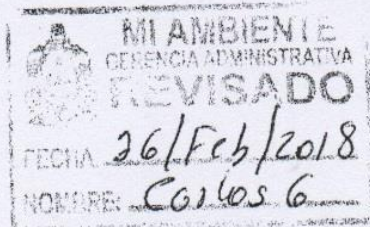 MI AMBIENTE
GERENCIA ADMINISTRATIVA
REVISADO
FECHA 26/Feb/2018
NOMBRE: Carlos G